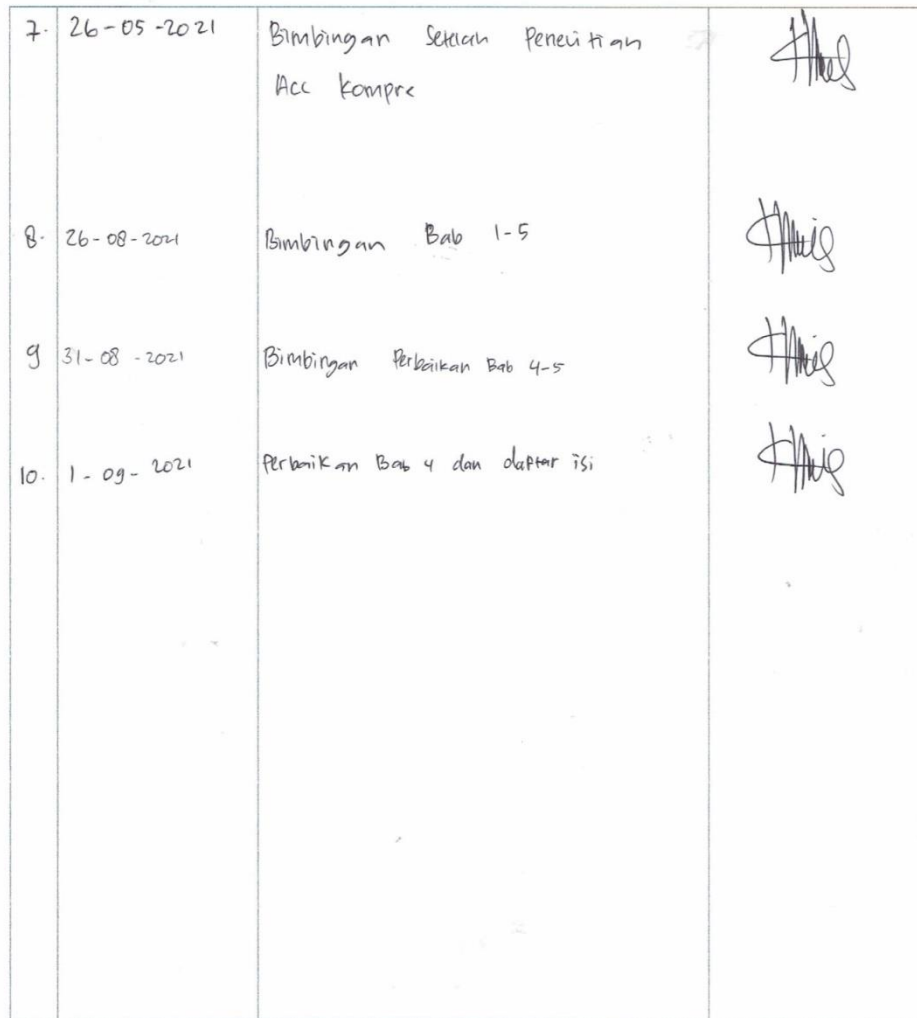 7. 26-05-2021 Bimbingan Setelah Penelitian
Acc Kompre
8. 26-08-2021 Bimbingan Bab 1-5
9 31-08-2021 Bimbingan Perbaikan Bab 4-5
10. 1-09-2021 Perbaikan Bab 4 dan daftar isi